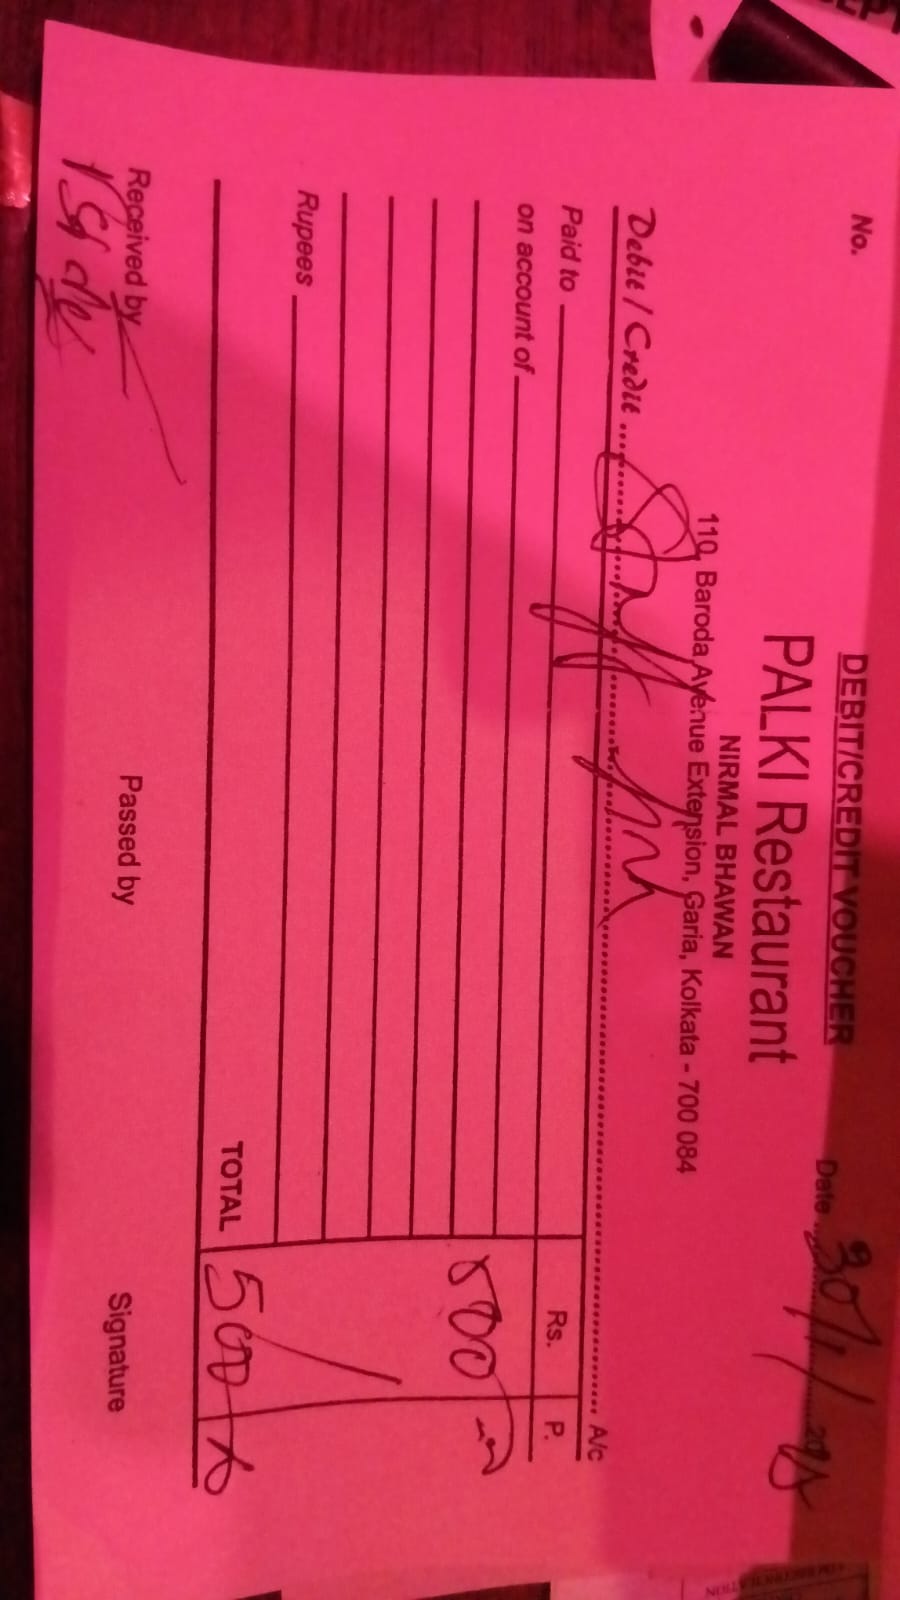 DEBIT/CREDIT VOUCHER
No.
Date 30/1/2025
PALKI Restaurant
NIRMAL BHAWAN
110, Baroda Avenue Extension, Garia, Kolkata - 700 084
Debit / Credit A/c
Paid to Rs. P.
on account of
500
Rupees
TOTAL 500
Received by Passed by Signature